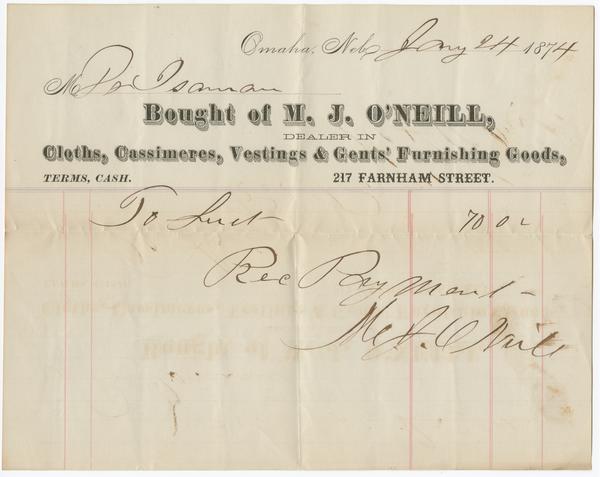 Omaha, Neb Jany 24 1874
M P Isaman
Bought of M. J. O'NEILL,
DEALER IN
Cloths, Cassimeres, Vestings & Gents' Furnishing Goods,
TERMS, CASH. 217 FARNHAM STREET.
To Suit 70 00
Rec Payment -
M. J. O Neill